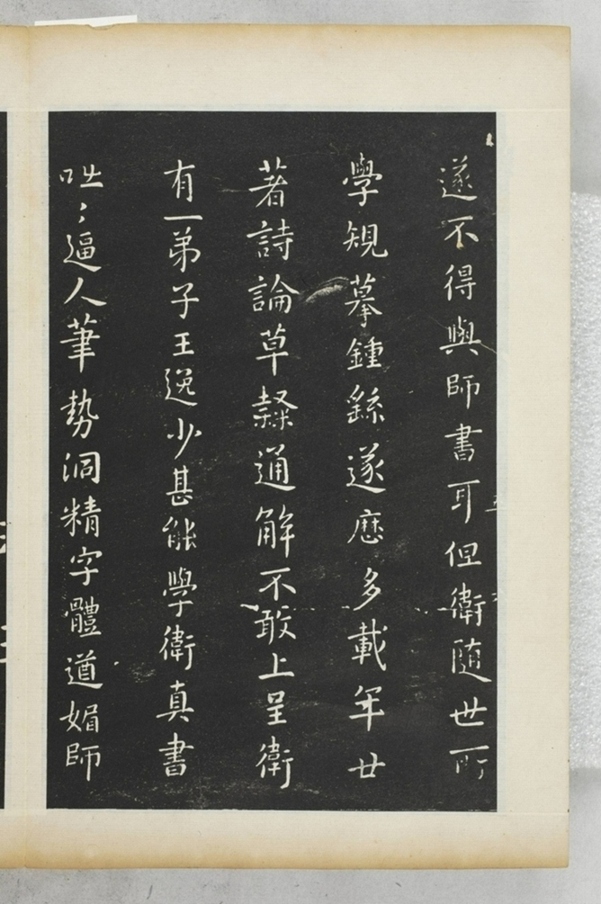 遂不得與師書耳但衛随世所
學規摹鍾繇遂歷多載年廿
著詩論草隸通解不敢上呈衛
有一弟子王逸少甚能學衛真書
咄〻逼人筆勢洞精字體遒媚師